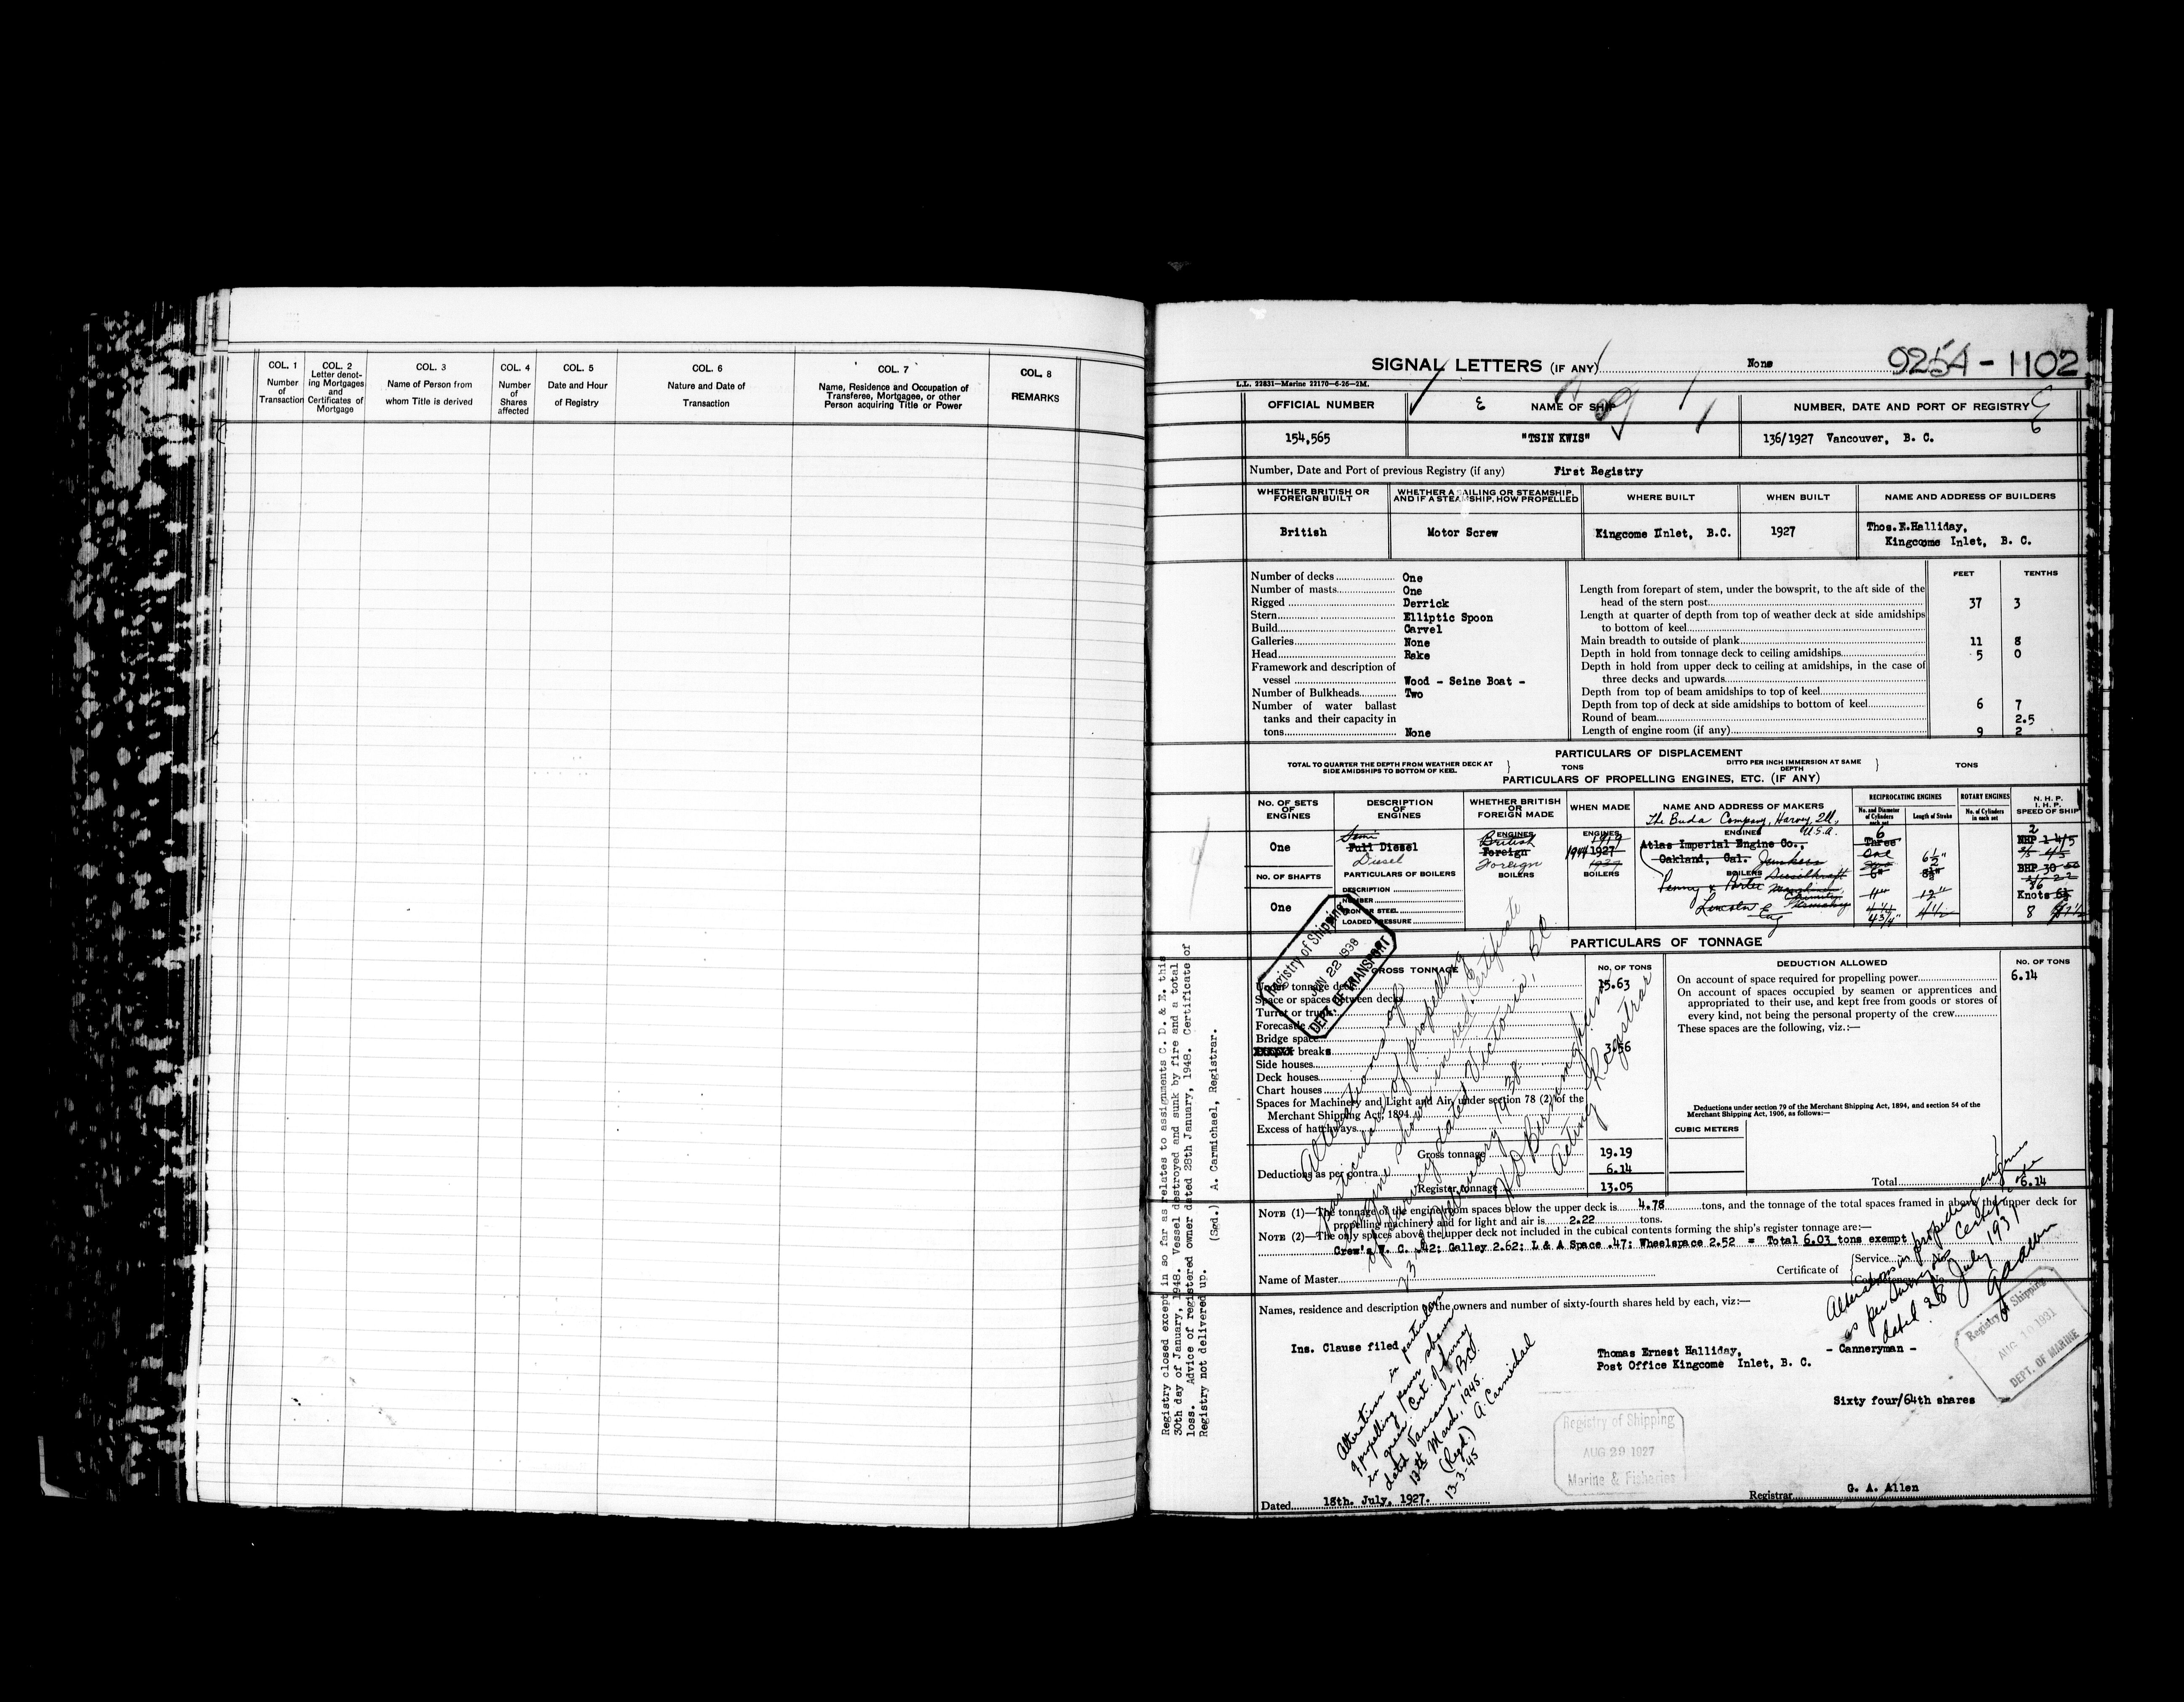 COL. 1
Number
of
Transaction
COL. 2
Letter denot-
ing Mortgages
and
Certificates of
Mortgage
COL. 3
Name of Person from
whom Title is derived
COL. 4
Number
of
Shares
affected
COL. 5
Date and Hour
of Registry
COL. 6
Nature and Date of
Transaction
COL. 7
Name, Residence and Occupation of
Transferee, Mortgagee, or other
Person acquiring Title or Power
COL. 8
REMARKS
SIGNAL LETTERS (IF ANY) None
925A - 1102
L.L. 22831—Marine 22170—6-26—2M.
OFFICIAL NUMBER
NAME OF SHIP
NUMBER, DATE AND PORT OF REGISTRY
154,565
"TSIN KWIS"
136/1927 Vancouver, B. C.
Number, Date and Port of previous Registry (if any) First Registry
WHETHER BRITISH OR
FOREIGN BUILT
WHETHER A SAILING OR STEAMSHIP,
AND IF A STEAMSHIP, HOW PROPELLED
WHERE BUILT
WHEN BUILT
NAME AND ADDRESS OF BUILDERS
British
Motor Screw
Kingcome Inlet, B.C.
1927
Thos.E.Halliday,
Kingcome Inlet, B. C.
Number of decks One
Number of masts One
Rigged Derrick
Stern Elliptic Spoon
Build Carvel
Galleries None
Head Rake
Framework and description of
vessel Wood - Seine Boat -
Number of Bulkheads Two
Number of water ballast
tanks and their capacity in
tons None
FEET TENTHS
Length from forepart of stem, under the bowsprit, to the aft side of the
head of the stern post 37 3
Length at quarter of depth from top of weather deck at side amidships
to bottom of keel
Main breadth to outside of plank 11 8
Depth in hold from tonnage deck to ceiling amidships 5 0
Depth in hold from upper deck to ceiling at amidships, in the case of
three decks and upwards
Depth from top of beam amidships to top of keel
Depth from top of deck at side amidships to bottom of keel 6 7
Round of beam 2.5
Length of engine room (if any) 9 2
PARTICULARS OF DISPLACEMENT
TOTAL TO QUARTER THE DEPTH FROM WEATHER DECK AT
SIDE AMIDSHIPS TO BOTTOM OF KEEL
TONS
DITTO PER INCH IMMERSION AT SAME
DEPTH
TONS
PARTICULARS OF PROPELLING ENGINES, ETC. (IF ANY)
NO. OF SETS
OF
ENGINES
DESCRIPTION
OF
ENGINES
WHETHER BRITISH
OR
FOREIGN MADE
WHEN MADE
NAME AND ADDRESS OF MAKERS
RECIPROCATING ENGINES
No. and Diameter
of Cylinders
each set
Length of Stroke
ROTARY ENGINES
No. of Cylinders
in each set
N. H. P.
I. H. P.
SPEED OF SHIP
The Buda Company, Harvey, Ill,
U.S.A.
One
Semi
Full Diesel
Diesel
ENGINES
British
Foreign
Foreign
ENGINES
1919
1944 1927
ENGINES
Atlas Imperial Engine Co.,
Oakland, Cal. Junkers
6
Three
One
6½"
2
NHP 1 4/5
BHP 30
86
Knots
8
NO. OF SHAFTS
One
PARTICULARS OF BOILERS
DESCRIPTION
NUMBER
IRON OR STEEL
LOADED PRESSURE
BOILERS
BOILERS
BOILERS
Penny & Porter
Lincoln
Eng
11" 12"
PARTICULARS OF TONNAGE
GROSS TONNAGE
NO. OF TONS
Under tonnage deck 15.63
Space or spaces between decks
Turret or trunk
Forecastle
Bridge space
breaks 3.56
Side houses
Deck houses
Chart houses
Spaces for Machinery and Light and Air, under section 78 (2) of the
Merchant Shipping Act, 1894
Excess of hatchways
Gross tonnage 19.19
Deductions as per contra 6.14
Register tonnage 13.05
DEDUCTION ALLOWED
NO. OF TONS
On account of space required for propelling power 6.14
On account of spaces occupied by seamen or apprentices and
appropriated to their use, and kept free from goods or stores of
every kind, not being the personal property of the crew
These spaces are the following, viz.:—
Deductions under section 79 of the Merchant Shipping Act, 1894, and section 54 of the
Merchant Shipping Act, 1906, as follows:—
CUBIC METERS
Total 6.14
Registry of Shipping
JAN 22 1938
DEPT. OF TRANSPORT
Alterations of
particulars of propelling
engine shown in red Certificate
of Survey dated Victoria, BC
23rd February 1938
Acting Registrar
NOTE (1)—The tonnage of the engine room spaces below the upper deck is 4.78 tons, and the tonnage of the total spaces framed in above the upper deck for
propelling machinery and for light and air is 2.22 tons.
NOTE (2)—The only spaces above the upper deck not included in the cubical contents forming the ship's register tonnage are:—
Crew's W. C. .42; Galley 2.62; L & A Space .47; Wheelspace 2.52 = Total 6.03 tons exempt
Name of Master
Certificate of
Service No.
Competency No.
Alterations in propelling engine
as per Survey Certificate
dated 28 July 1931
G A Allen
Names, residence and description of the owners and number of sixty-fourth shares held by each, viz:—
Ins. Clause filed
Thomas Ernest Halliday,
Post Office Kingcome Inlet, B. C.
- Canneryman -
Sixty four/64th shares
Registry of Shipping
AUG 10 1931
DEPT. OF MARINE
Alteration in particulars
of propelling power shown
in green. Cert. of Survey
dated Vancouver, B.C.
13th March, 1945.
(Regd.) A. Carmichael
13-3-45
Registry of Shipping
AUG 29 1927
Marine & Fisheries
Dated 18th. July, 1927.
Registrar G. A. Allen
Registry closed except in so far as relates to assignments C. D. & E. this
30th day of January, 1948. Vessel destroyed and sunk by fire and a total
loss. Advice of registered owner dated 28th January, 1948. Certificate of
Registry not delivered up.
(Sgd.) A. Carmichael, Registrar.